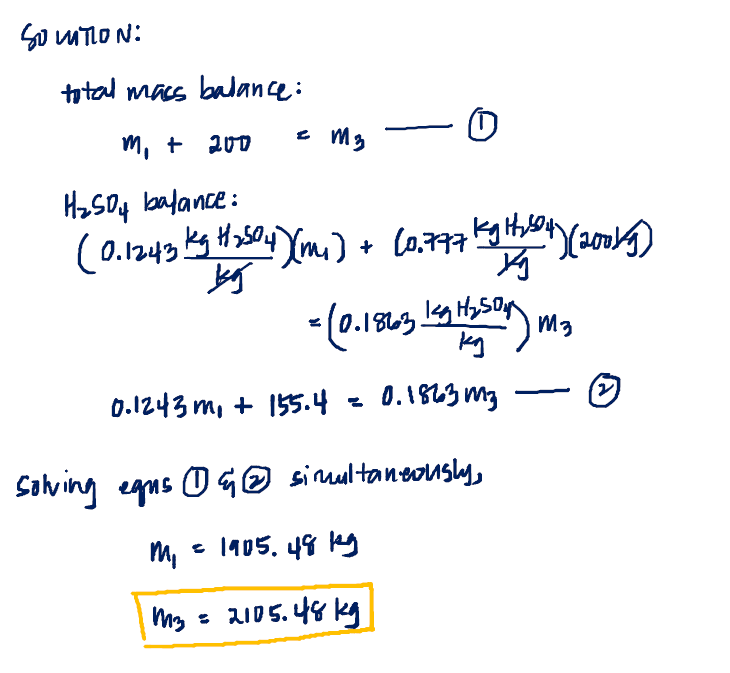 SOLUTION:
total mass balance:
m₁ + 200 = m₃ —— ①
H₂SO₄ balance:
(0.1243 kg H₂SO₄/kg)(m₁) + (0.777 kg H₂SO₄/kg)(200kg)
= (0.1863 kg H₂SO₄/kg) m₃
0.1243 m₁ + 155.4 = 0.1863 m₃ —— ②
Solving eqns ① & ② simultaneously,
m₁ = 1905.48 kg
m₃ = 2105.48 kg